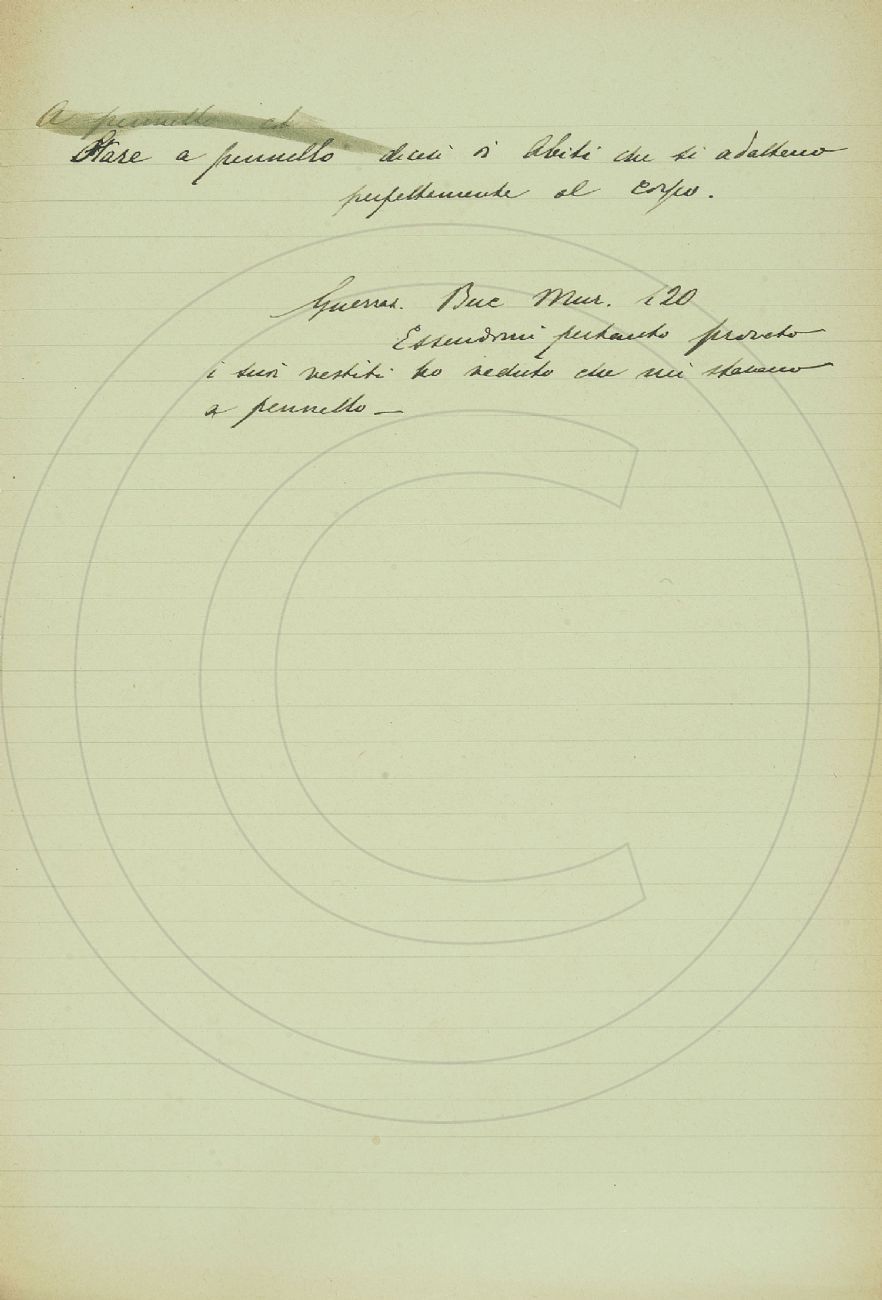 A pennello
Stare a pennello dicesi di Abiti che si adattano
perfettamente al corpo.
Guerraz. Buc Mur. 120
Essendomi pertanto provato
i suoi vestiti ho veduto che mi stavano
a pennello —